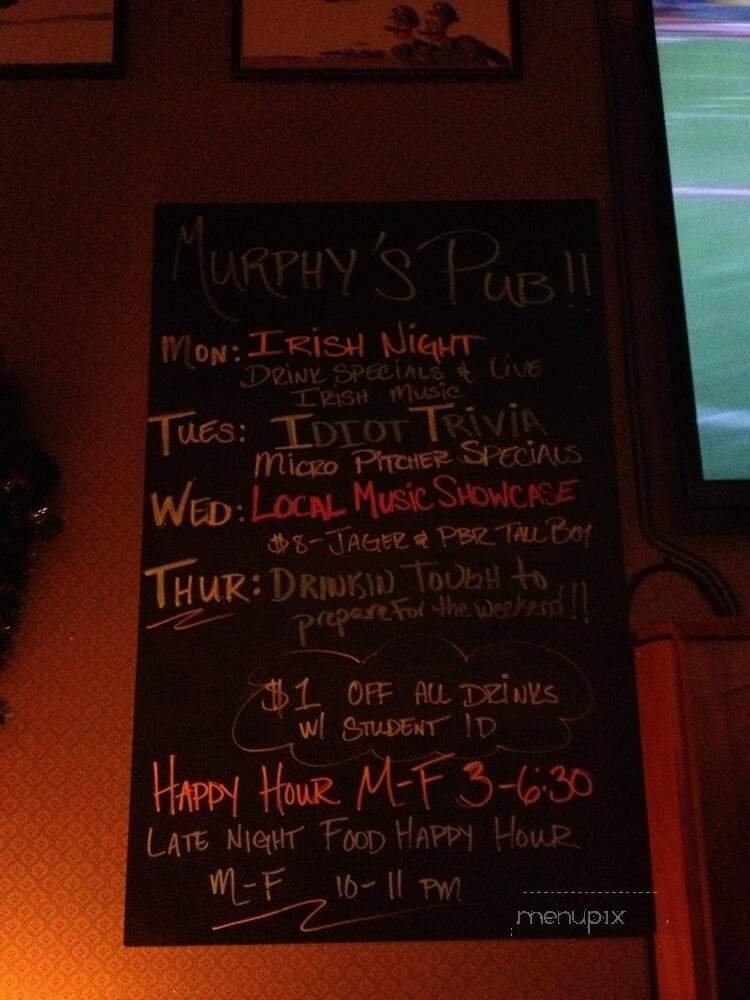 MURPHY'S PUB!!
MON: IRISH NIGHT
DRINK SPECIALS & LIVE
IRISH MUSIC
TUES: IDIOT TRIVIA
MICRO PITCHER SPECIALS
WED: LOCAL MUSIC SHOWCASE
$8-JAGER & PBR TALL BOY
THUR: DRINKIN TOUGH to
prepare For the weekend!!
$1 OFF ALL DRINKS
W/ STUDENT ID
HAPPY HOUR M-F 3-6:30
LATE NIGHT FOOD HAPPY HOUR
M-F 10-11 PM
menupix